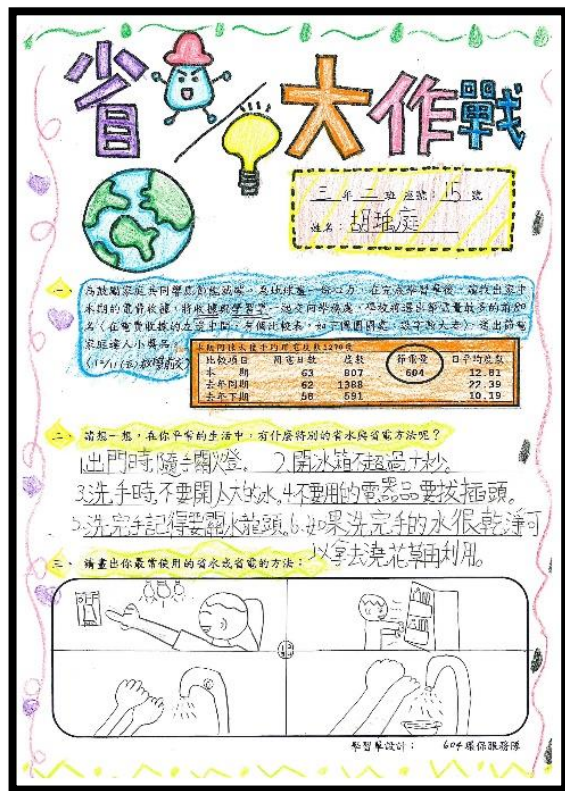 省 大作戰
三 年 二 班 座號：15 號
姓名：胡瑀庭
一、 為鼓勵家庭共同響應節能減碳，為地球盡一份心力，在完成學習單後，請找出家中
本期的電費收據，將收據與學習單一起交回學務處，學校將選出節電量最多的前20
名（在電費收據的左邊中間，有個比較表，如下圖圈圈處，數字最大者），送出節電
家庭達人小獎品。
比較項目 用電日數 度數 節電量 日平均度數
本 期 63 807 604 12.81
去年同期 62 1388 22.39
去年下期 58 591 10.19
二、 請想一想，在你平常的生活中，有什麼特別的省水與省電方法呢？
1.出門時隨手關燈。 2.開冰箱不超過十秒。
3.洗手時不要開太大的水。4.不要用的電器品要拔插頭。
5.洗完手記得要關水龍頭。6.如果洗完手的水很乾淨可
以拿去澆花草再利用。
三、 請畫出你最常使用的省水或省電的方法：
學習單設計： 604環保服務隊